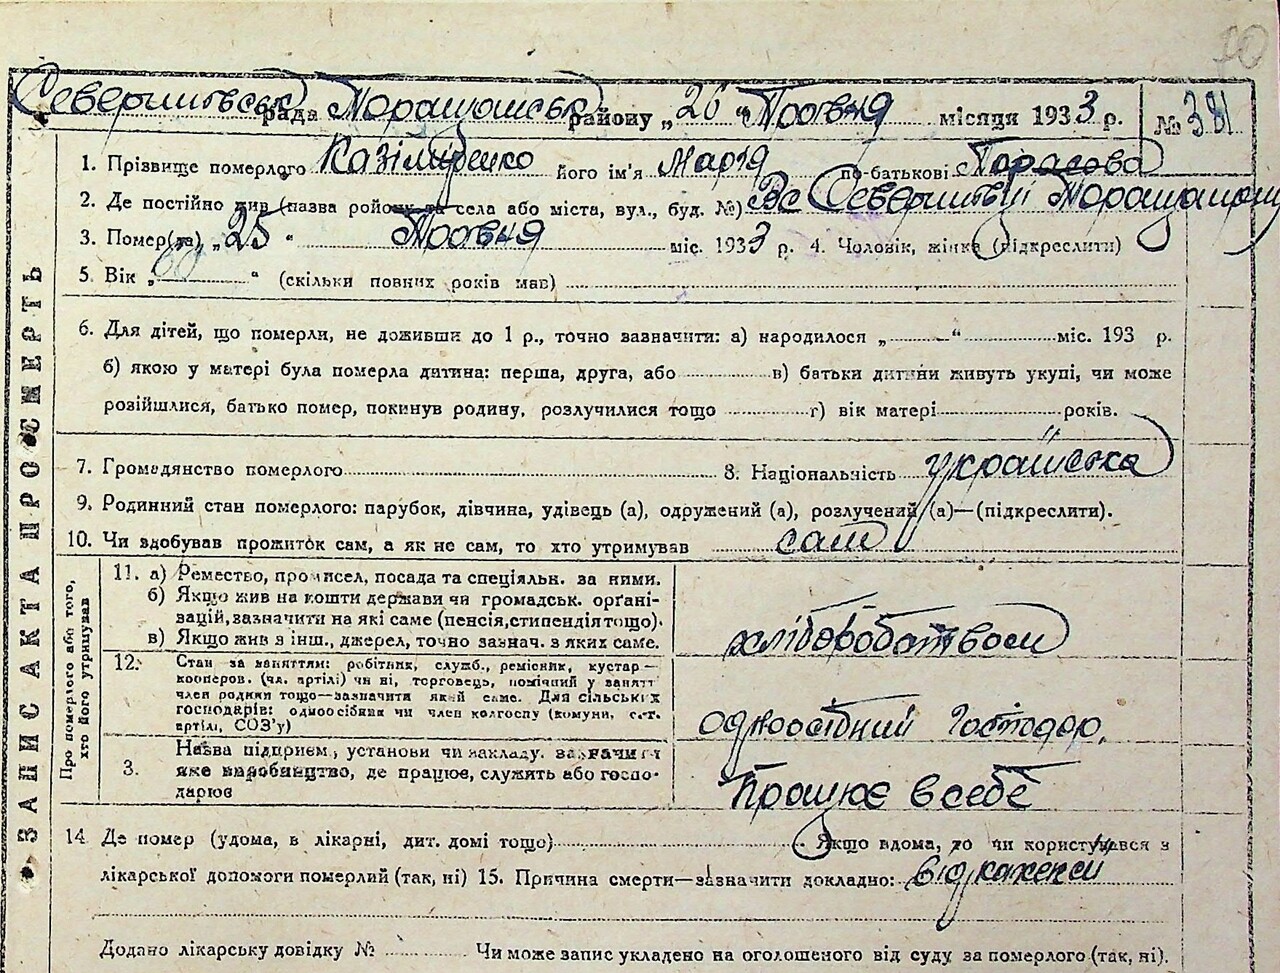 70
рада Таращанськ району „26“ Травня місяця 1933 р. № 381
1. Прізвище померлого Казіміренко його ім'я Марія по-батькові Тарасова
2. Де постійно жив (назва району та села або міста, вул., буд. №)
3. Помер(ла) „25“ Травня міс. 1933 р. 4. Чоловік, жінка (підкреслити)
5. Вік „60“ (скільки повних років мав)
6. Для дітей, що померли, не доживши до 1 р., точно зазначити: а) народилося „ “ міс. 193 р.
б) якою у матері була померла дитина: перша, друга, або в) батьки дитини живуть укупі, чи може
розійшлися, батько помер, покинув родину, розлучилися тощо г) вік матері років.
7. Громадянство померлого 8. Національність українська
9. Родинний стан померлого: парубок, дівчина, удівець (а), одружений (а), розлучений (а)—(підкреслити).
10. Чи здобував прожиток сам, а як не сам, то хто утримував сам
ЗАПИС АКТА ПРО СМЕРТЬ
Про померлого або того,
хто його утримував
11. а) Ремество, промисел, посада та спеціяльн. за ними.
б) Якщо жив на кошти держави чи громадськ. орґані-
зацій, зазначити на які саме (пенсія, стипендія тощо).
в) Якщо жив з інш., джерел, точно зазнач. з яких саме.
хліборобством
12. Стан за заняттям: робітник, служб., ремісник, кустар—
кооперов. (чл. артілі) чи ні, торговець, помічний у занятт
член родини тощо—зазначити який саме. Для сільських
господарів: одноосібник чи член колгоспу (комуни, с.-г.
артілі, СОЗ'у)
одноосібний господар,
3. Назва підприєм., установи чи закладу, зазначити
яке виробництво, де працює, служить або госпо-
дарює
працює в себе
14. Де помер (удома, в лікарні, дит. домі тощо) Якщо вдома, то чи користувався з
лікарської допомоги померлий (так, ні) 15. Причина смерти—зазначити докладно: від
Додано лікарську довідку № Чи може запис укладено на оголошеного від суду за померлого (так, ні).